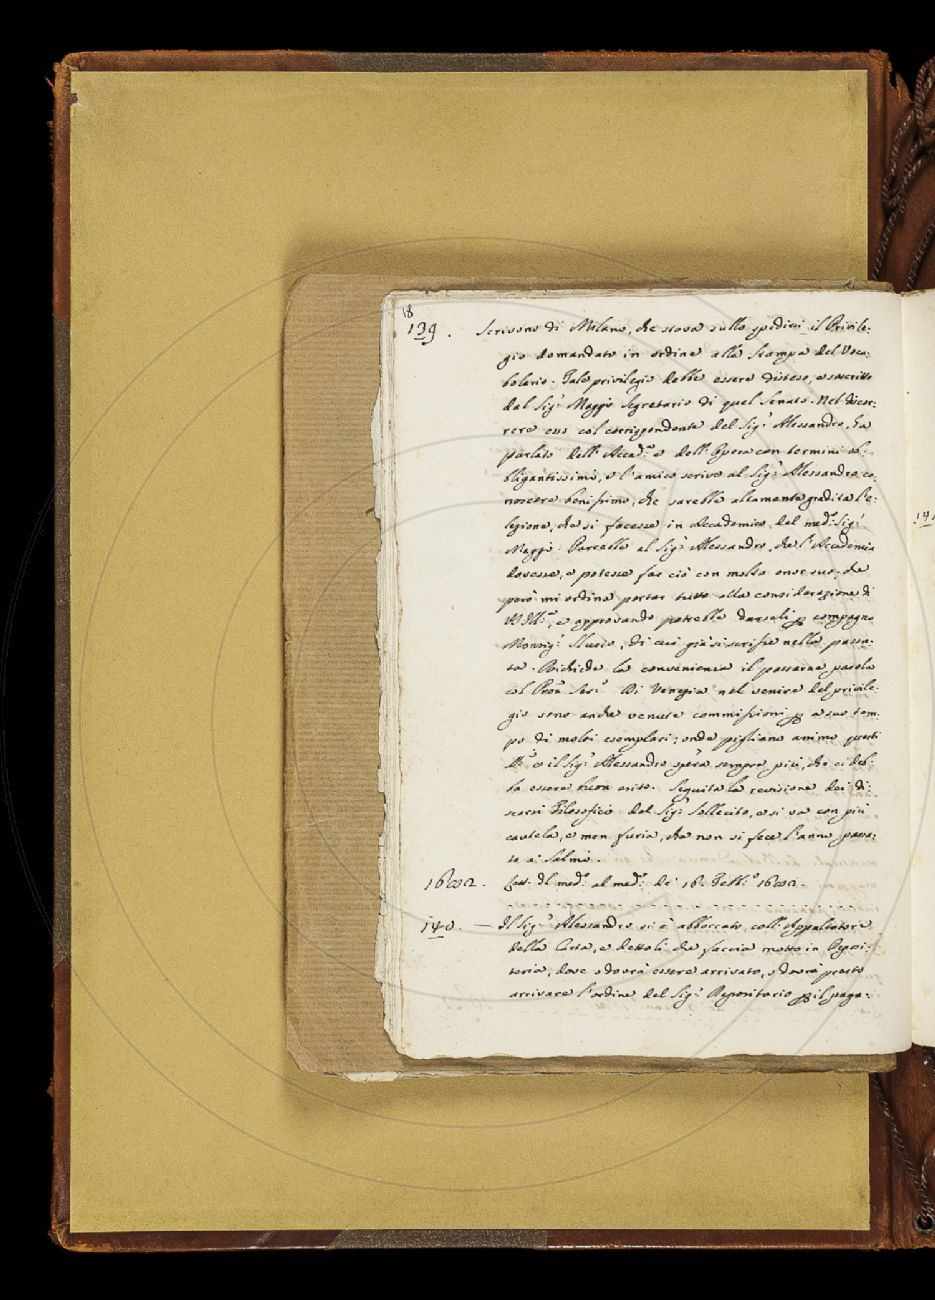 18
139. Scrivono di Milano, che stava sullo spedirsi il Privile:
gio domandato in ordine alla stampa del Voca:
bolario. Tale privilegio debbe essere disteso, e soscritto
dal Sig.r Maggi Segretario di quel Senato. Nel discor:
rere esso col corrispondente del Sig.r Alessandro, ha
parlato dell'Accad.a e dell'Opera con termini ob:
bligantissimi, e l'amico scrive al Sig.r Alessandro co:
noscere benissimo, che sarebbe altamente gradita l'e:
lezione, che si facesse in Accademico del med.o Sig.r
Maggi. Parrebbe al Sig.r Alessandro, che l'Accademia
dovesse, e potesse far ciò con molto onor suo, che
però mi ordina portar tutto alla considerazione di
VS Ill.ma, e approvando potrebbe darseli p compagno
Monsig.r di cui già si scrisse nella passa:
ta. Richiede la convenienza il passarne parola
col Pron Ser.mo Di Venezia nel venire del privile:
gio sono anche venute commissioni p a suo tem:
po di molti esemplari; onde pigliano animo questi
e il Sig.r Alessandro spera sempre più, che ci deb:
ba essere buon esito. Seguita la revisione dei di:
scorsi Filosofici del Sig.r Sollecito, e si va con più
cautela, e men furia, che non si fece l'anno passa:
to a' Salmi.
1682. Lett. dl med.o al med.o de' 16. Febb.o 1682.
140. — Il Sig.r Alessandro si è abboccato coll'Appaltatore
della Carta, e dettoli che faccia motto in Deposi:
teria, dove o dovrà essere arrivato, o dovrà presto
arrivare l'ordine del Sig.r Depositario p il paga:
141